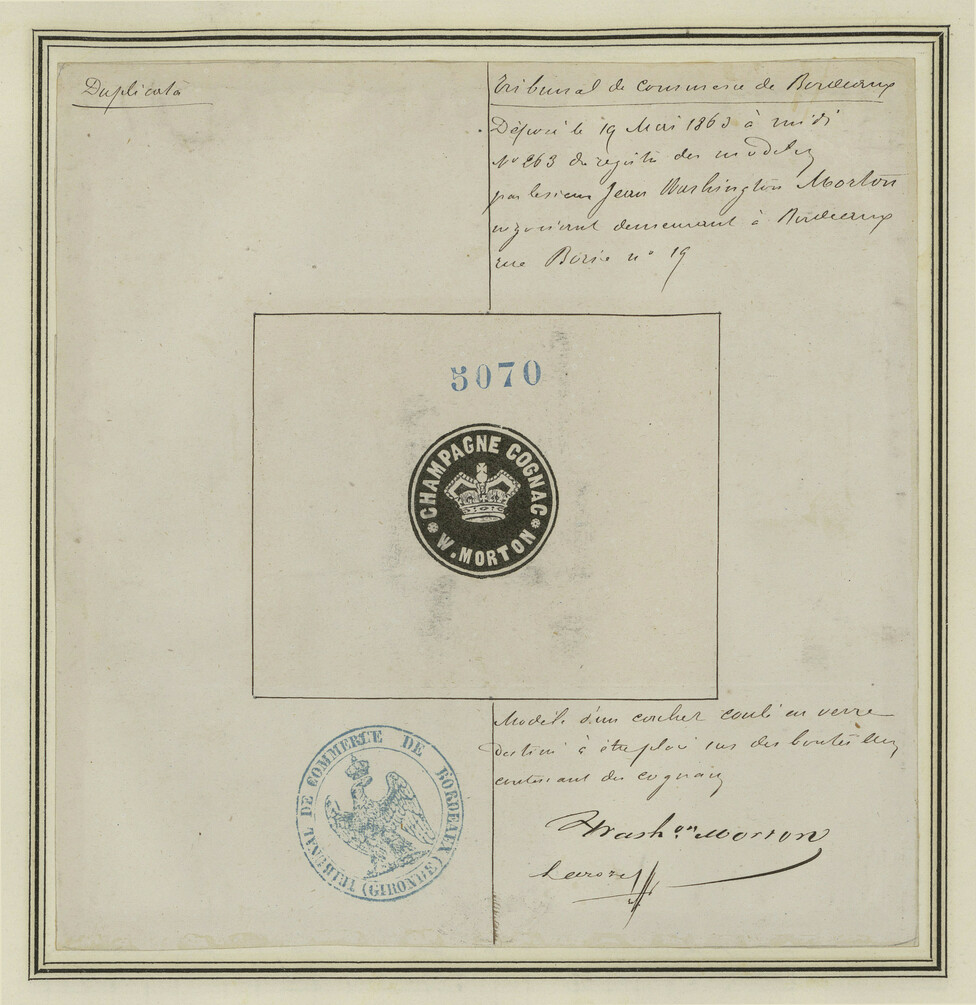 Duplicata
Tribunal de commerce de Bordeaux
Déposé le 19 Mai 1863 à midi
N° 263 du registre des modèles
par le sieur Jean Washington Morton
négociant demeurant à Bordeaux
rue Borie n° 19
5070
CHAMPAGNE COGNAC
W. MORTON
Modèle d'un cachet coulé en verre
destiné à être placé sur des bouteilles
contenant du cognac
TRIBUNAL DE COMMERCE DE BORDEAUX
(GIRONDE)
Wash.on Morton